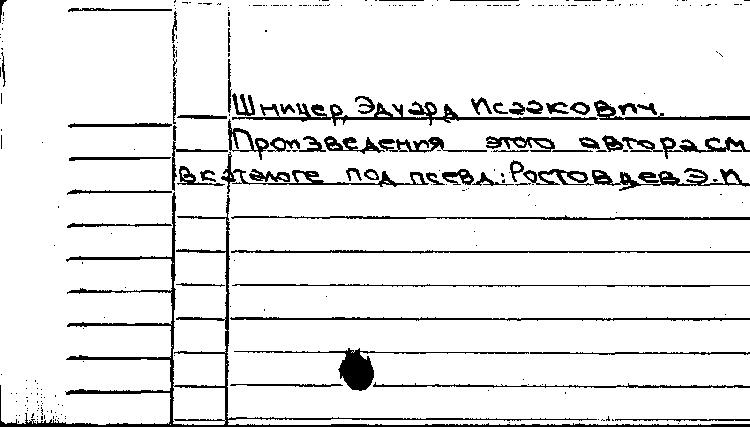 Шницер, Эдуард Исаакович.
Произведения этого автора см
в каталоге под псевд.: Ростовцев Э. И